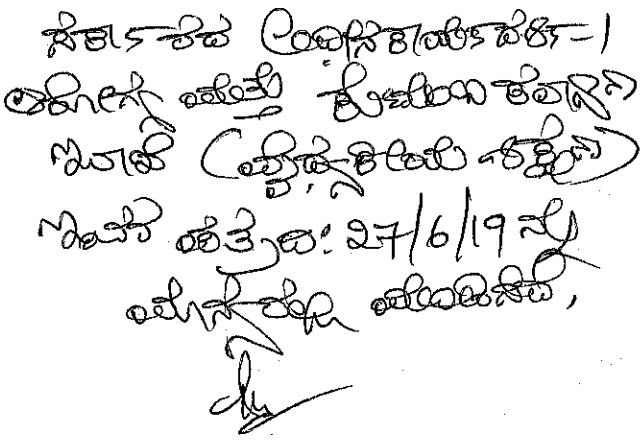 ಸರ್ಕಾರದ ಅಧೀನ ಕಾರ್ಯದರ್ಶಿ-1
ಆರೋಗ್ಯ ಮತ್ತು ಕುಟುಂಬ ಕಲ್ಯಾಣ
ಇಲಾಖೆ (ವೈದ್ಯಕೀಯ ಶಿಕ್ಷಣ)
ಇವರ ಪತ್ರ ದಿ: 27/6/19 ನ್ನು